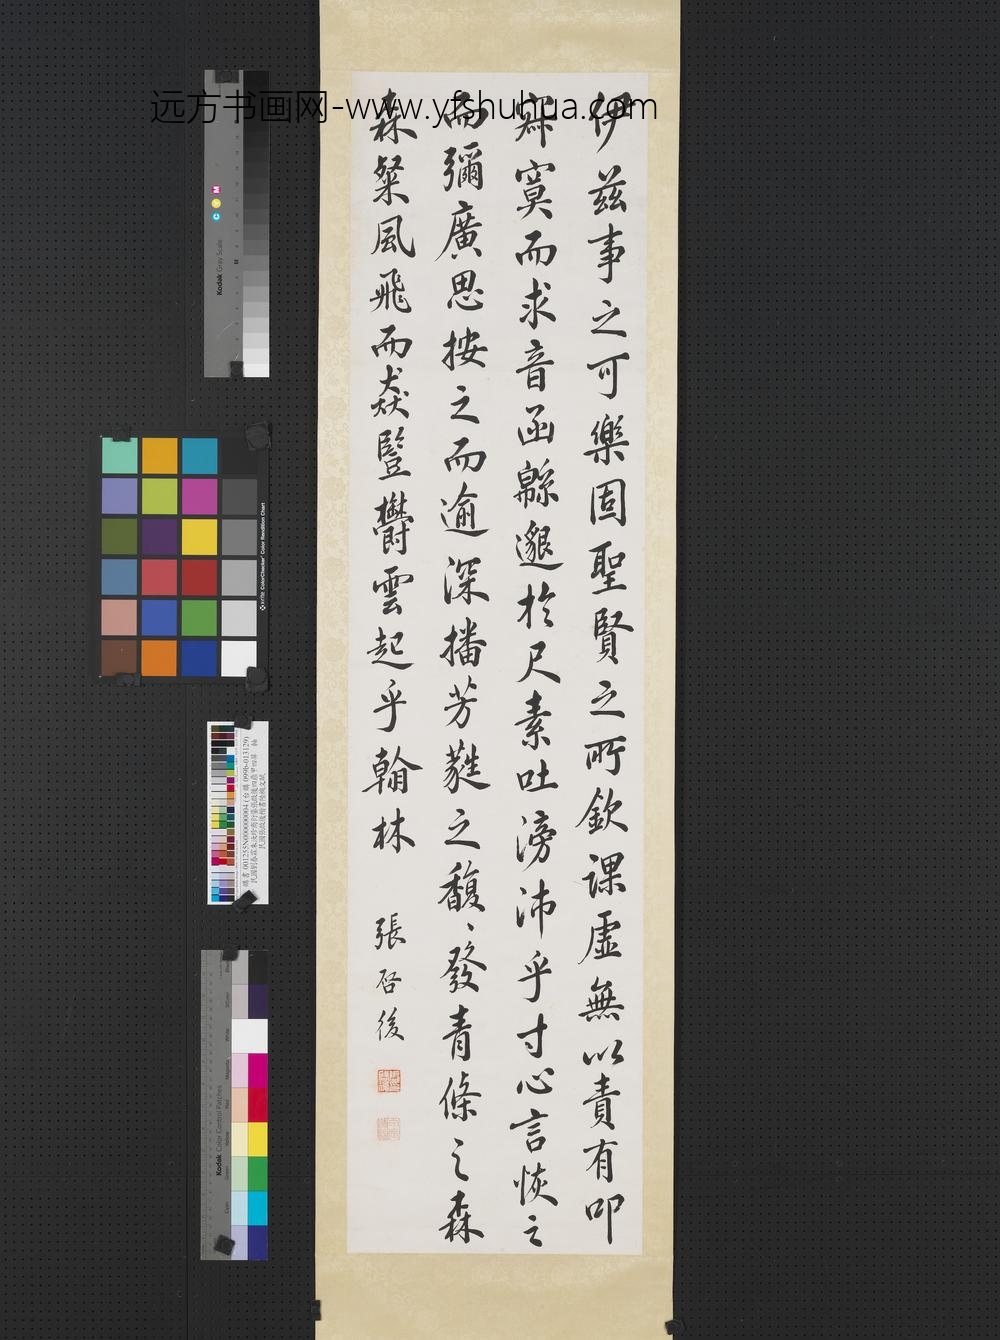 远方书画网-www.yfshuhua.com
伊茲事之可樂固聖賢之所欽課虛無以責有叩
寂寞而求音函緜邈於尺素吐滂沛乎寸心言恢之
而彌廣思按之而逾深播芳蕤之馥、發青條之森
森粲風飛而猋豎鬱雲起乎翰林
張启後
Kodak Gray Scale
C Y M
ColorChecker Color Rendition Chart
購書 001255N000000004 (台購 099b-013129)
Kodak Color Control Patches